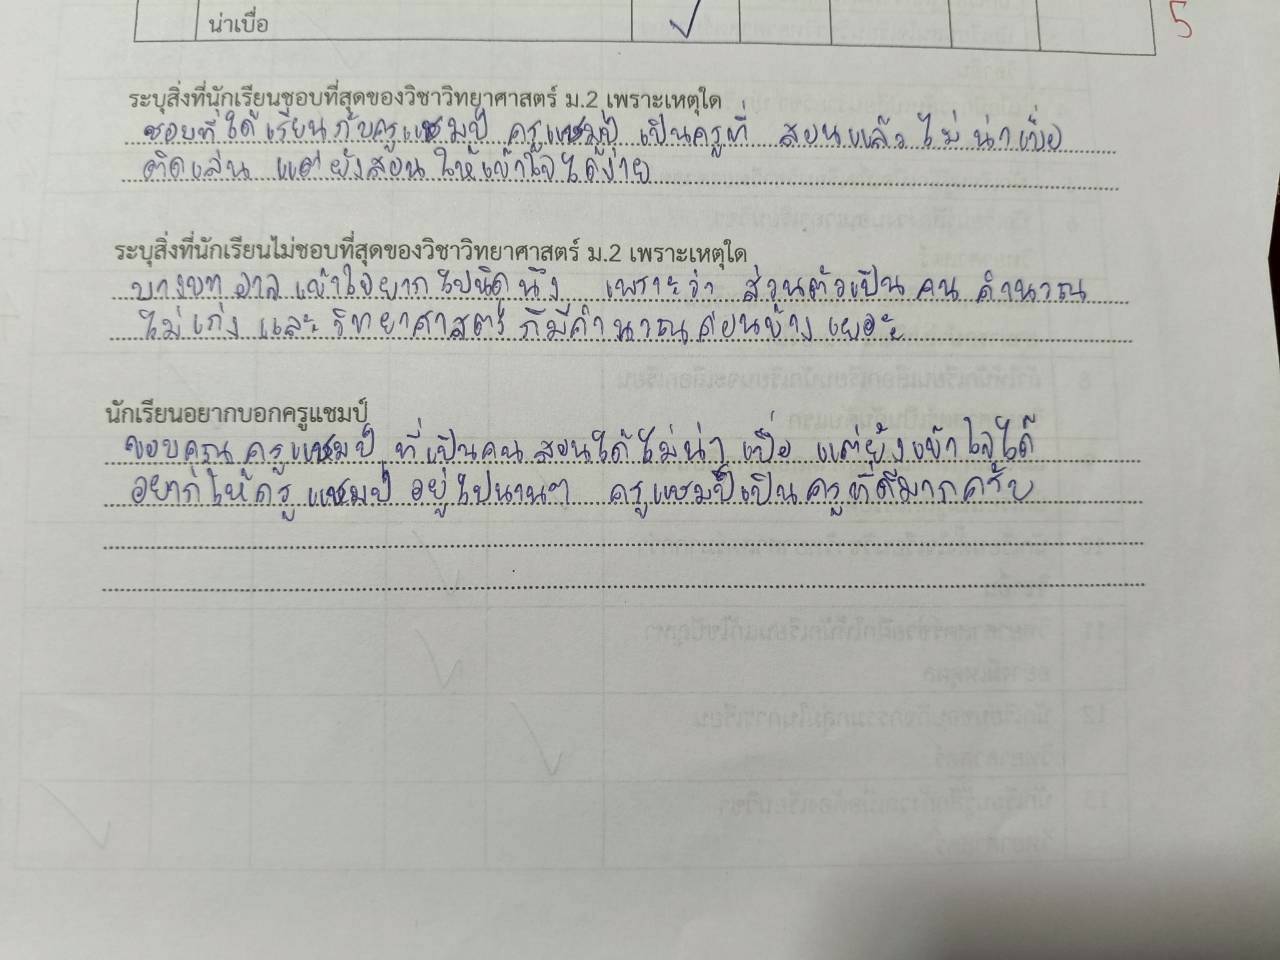 น่าเบื่อ
5
ระบุสิ่งที่นักเรียนชอบที่สุดของวิชาวิทยาศาสตร์ ม.2 เพราะเหตุใด
ชอบที่ได้เรียนกับครูแชมป์ ครูแชมป์ เป็นครูที่ สอนแล้วไม่น่าเบื่อ
ติดเล่น แต่ยังสอนให้เข้าใจได้ง่าย
ระบุสิ่งที่นักเรียนไม่ชอบที่สุดของวิชาวิทยาศาสตร์ ม.2 เพราะเหตุใด
บางบทอาจเข้าใจยากไปนิดนึง เพราะว่า ส่วนตัวเป็นคน คำนวณ
ไม่เก่ง และวิทยาศาสตร์ ก็มีคำนวณค่อนข้างเยอะ
นักเรียนอยากบอกครูแชมป์
ขอบคุณครูแชมป์ ที่เป็นคนสอนได้ไม่น่าเบื่อ แต่ยังเข้าใจได้
อยากให้ครูแชมป์อยู่ไปนานๆ ครูแชมป์เป็นครูที่ดีมากครับ